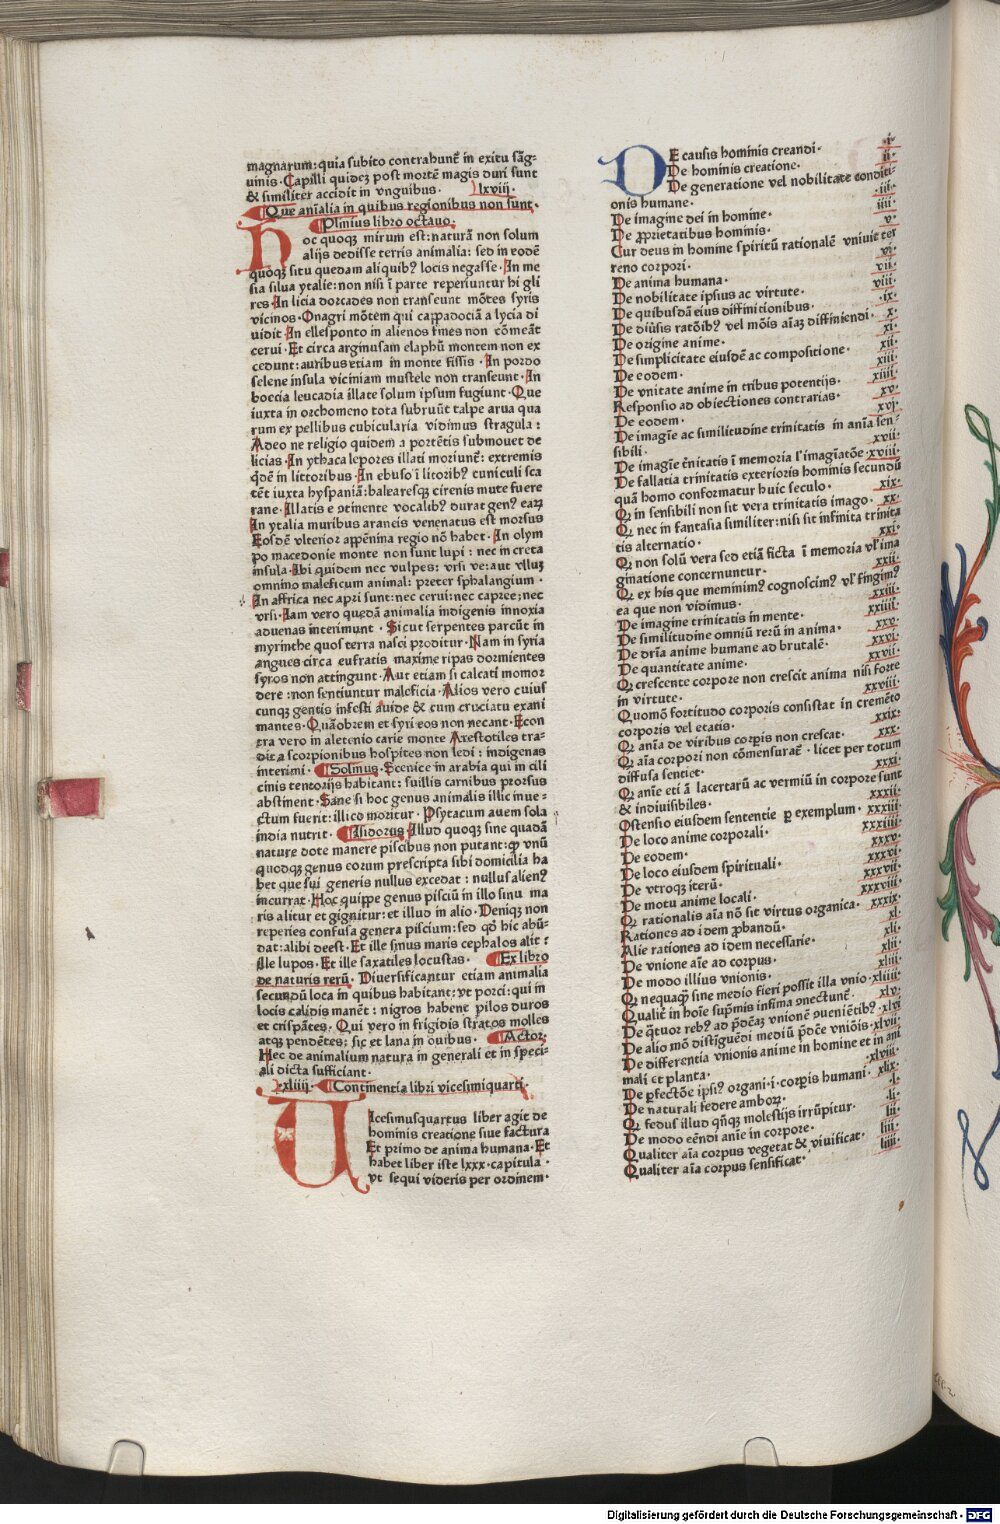 magnarum: quia subito contrahunt̃ in exitu sãg-
uinis · Capilli quidez post mortẽ magis duri sunt
& similiter accidit in vnguibus · lxviij ·
Que aĩalia in quibus regionibus non sunt ·
Plinius libro octauo ·
Hoc quoqz mirum est: naturã non solum
alijs dedisse terris animalia: sed in eodẽ
quoqz situ quedam aliquibꝰ locis negasse · In me
sia silua ytalie: non nisi ĩ parte reperiuntur hi gli
res · In licia dorcades non transeunt mõtes syris
vicinos · Onagri mõtem qui cappadociã a lycia di
uidit · In ellesponto in alienos fines non cõmeãt
cerui · Et circa arginusam elaphũ montem non ex
cedunt: auribus etiam in monte fissis · In pordo
selene insula viciniam mustele non transeunt · In
boecia leucadia illate solum ipsum fugiunt · Que
iuxta in orchomeno tota subruũt talpe arua qua
rum ex pellibus cubicularia vidimus stragula :
Adeo ne religio quidem a portẽtis submouet de
licias · In ythaca lepores illati moriunt̃: extremis
qͥdẽ in littoribus · In ebuso ĩ litoribꝰ cuniculi sca
tẽt iuxta hyspaniã: balearesqz cirenis mute fuere
rane · Illatis e ꝯtinente vocalibꝰ durat genꝰ eaꝝ
In ytalia muribus araneis venenatus est morsus
Eosdẽ vlterior appẽnina regio nõ habet · In olym
po macedonie monte non sunt lupi : nec in creta
insula · Ibi quidem nec vulpes: vrsi ve: aut vlluz
omnino maleficum animal: preter sphalangium ·
In affrica nec apri sunt: nec cerui: nec capree: nec
vrsi · Iam vero quedã animalia indigenis innoxia
aduenas interimunt · Sicut serpentes parcũt in
myrinthe quos terra nasci proditur · Nam in syria
angues circa eufratis maxime ripas dormientes
syros non attingunt · Aut etiam si calcati momor
dere : non sentiuntur maleficia · Alios vero cuius
cunqz gentis infesti auide & cum cruciatu exani
mantes · Quãobrem et syri eos non necant · Econ
tra vero in aletenio carie monte Arestotiles tra-
dit a scorpionibus hospites non ledi : indigenas
interimi · Solinus · Scenice in arabia qui in cili
cinis tentorijs habitant: suillis carnibus prorsus
abstinent · Sane si hoc genus animalis illic inue-
ctum fuerit: illico moritur · Psytacum auem sola
india nutrit · Isidorus · Illud quoqz sine quadã
nature dote manere piscibus non putant: qͥ vnũ
quodqz genus eorum prescripta sibi domicilia ha
bet que sui generis nullus excedat : nullus alienꝰ
incurrat · Hoc quippe genus pisciũ in illo sinu ma
ris alitur et gignitur: et illud in alio · Deniqz non
reperies confusa genera piscium: sed qͦ hic abũ-
dat: alibi deest · Et ille sinus maris cephalos alit :
Ille lupos · Et ille saxatiles locustas · Ex libro
de naturis rerũ · Diuersificantur etiam animalia
secundũ loca in quibus habitant: vt porci: qui in
locis calidis manẽt : nigros habent pilos duros
et crispãtes · Qui vero in frigidis stratos molles
atqz pendẽtes: sic et lana in ouibus · Actor:
Hec de animalium natura in generali et in speci-
ali dicta sufficiant ·
xliiij · Continentia libri vicesimiquarti ·
Uicesimusquartus liber agit de
hominis creatione siue factura
Et primo de anima humana · Et
habet liber iste lxxx · capitula ·
vt sequi videris per ordinem ·
De causis hominis creandi · i ·
De hominis creatione · ii ·
De generatione vel nobilitate conditi-
onis humane · iii ·
De imagine dei in homine · iiii ·
De ꝓprietatibus hominis · v ·
Cur deus in homine spiritũ rationalẽ vniuit ter
reno corpori · vi ·
De anima humana · vii ·
De nobilitate ipsius ac virtute · viii ·
De quibusdã eius diffinitionibus · ix ·
De diũsis ratõibꝰ vel mõis aĩaz diffiniendi · x ·
De origine anime · xi ·
De simplicitate eiusdẽ ac compositione · xii ·
De eodem · xiii ·
De vnitate anime in tribus potentijs · xiiii ·
Responsio ad obiectiones contrarias · xv ·
De eodem · xvi ·
De imagĩe ac similitudine trinitatis in anĩa sen-
sibili · xvii ·
De imagĩe tr̃nitatis ĩ memoria l' imagĩatõe · xviii ·
De fallatia trinitatis exterioris hominis secundũ
quã homo conformatur huic seculo · xix ·
Qꝛ in sensibili non sit vera trinitatis imago · xx ·
Qꝛ nec in fantasia similiter: nisi sit infinita trinita
tis alternatio · xxi ·
Qꝛ non solũ vera sed etiã ficta ĩ memoria vl' ima
ginatione concernuntur · xxii ·
Qꝛ ex his que meminimꝰ cognoscimꝰ vl' fingimꝰ
ea que non vidimus · xxiii ·
De imagine trinitatis in mente · xxiiii ·
De similitudine omniũ rerũ in anima · xxv ·
De dr̃ia anime humane ad brutalẽ · xxvi ·
De quantitate anime · xxvii ·
Qꝛ crescente corpore non crescit anima nisi forte
in virtute · xxviii ·
Quomõ fortitudo corporis consistat in cremẽto
corporis vel etatis · xxix ·
Qꝛ anĩa de viribus corꝑis non crescat · xxx ·
Qꝛ aĩa corpori non cõmensurat̃ · licet per totum
diffusa sentiet · xxxi ·
Qꝛ anĩe eti ã lacertarũ ac vermiũ in corpore sunt
& indiuisibiles · xxxii ·
Ostensio eiusdem sententie ꝑ exemplum · xxxiii ·
De loco anime corporali · xxxiiii ·
De eodem · xxxv ·
De loco eiusdem spirituali · xxxvi ·
De vtroqz iterũ · xxxvii ·
De motu anime locali · xxxviii ·
Qꝛ rationalis aĩa nõ sit virtus organica · xxxix ·
Rationes ad idem ꝓbandũ · xl ·
Alie rationes ad idem necessarie · xli ·
De vnione aĩe ad corpus · xlii ·
De modo illius vnionis · xliii ·
Qꝛ nequaqͣ sine medio fieri possit illa vnio · xliiii ·
Qualit̃ in hoĩe sup̃mis infima ꝯnectunt̃ · xlv ·
De qͣtuor rebꝰ ad p̃dcãz vnionẽ ꝯueniẽtibꝰ · xlvi
De alio mõ distĩguẽdi mediũ p̃dcẽ vniõis · xlvii ·
De differentia vnionis anime in homine et in ani
mali et planta · xlviii ·
De ꝑfectõe ipsiꝰ organi · i · corꝑis humani · xlix ·
De naturali federe amboꝝ · l ·
Qꝛ fedus illud qñqz molestijs irrũpitur · li ·
De modo eẽndi anĩe in corpore · lii ·
Qualiter aĩa corpus vegetat & viuificat · liii ·
Qualiter aĩa corpus sensificat · liiii ·
Digitalisierung gefördert durch die Deutsche Forschungsgemeinschaft - DFG